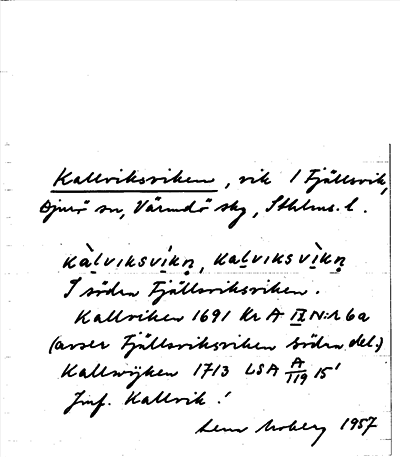 Kallviksviken, vik i Fjällsvik,
Djurö sn, Värmdö skg, Sthlms. l.
kàlvıksvíkn̥, kalvıksvìkn̥
I södra Fjällsviksviken.
Kallviken 1691 Kr A IX N:r 6a
(avser Fjällsviksviken södra del.)
Kallwijken 1713 LSA A/119 15¹
Jmf. Kallvik!
Moberg 1957